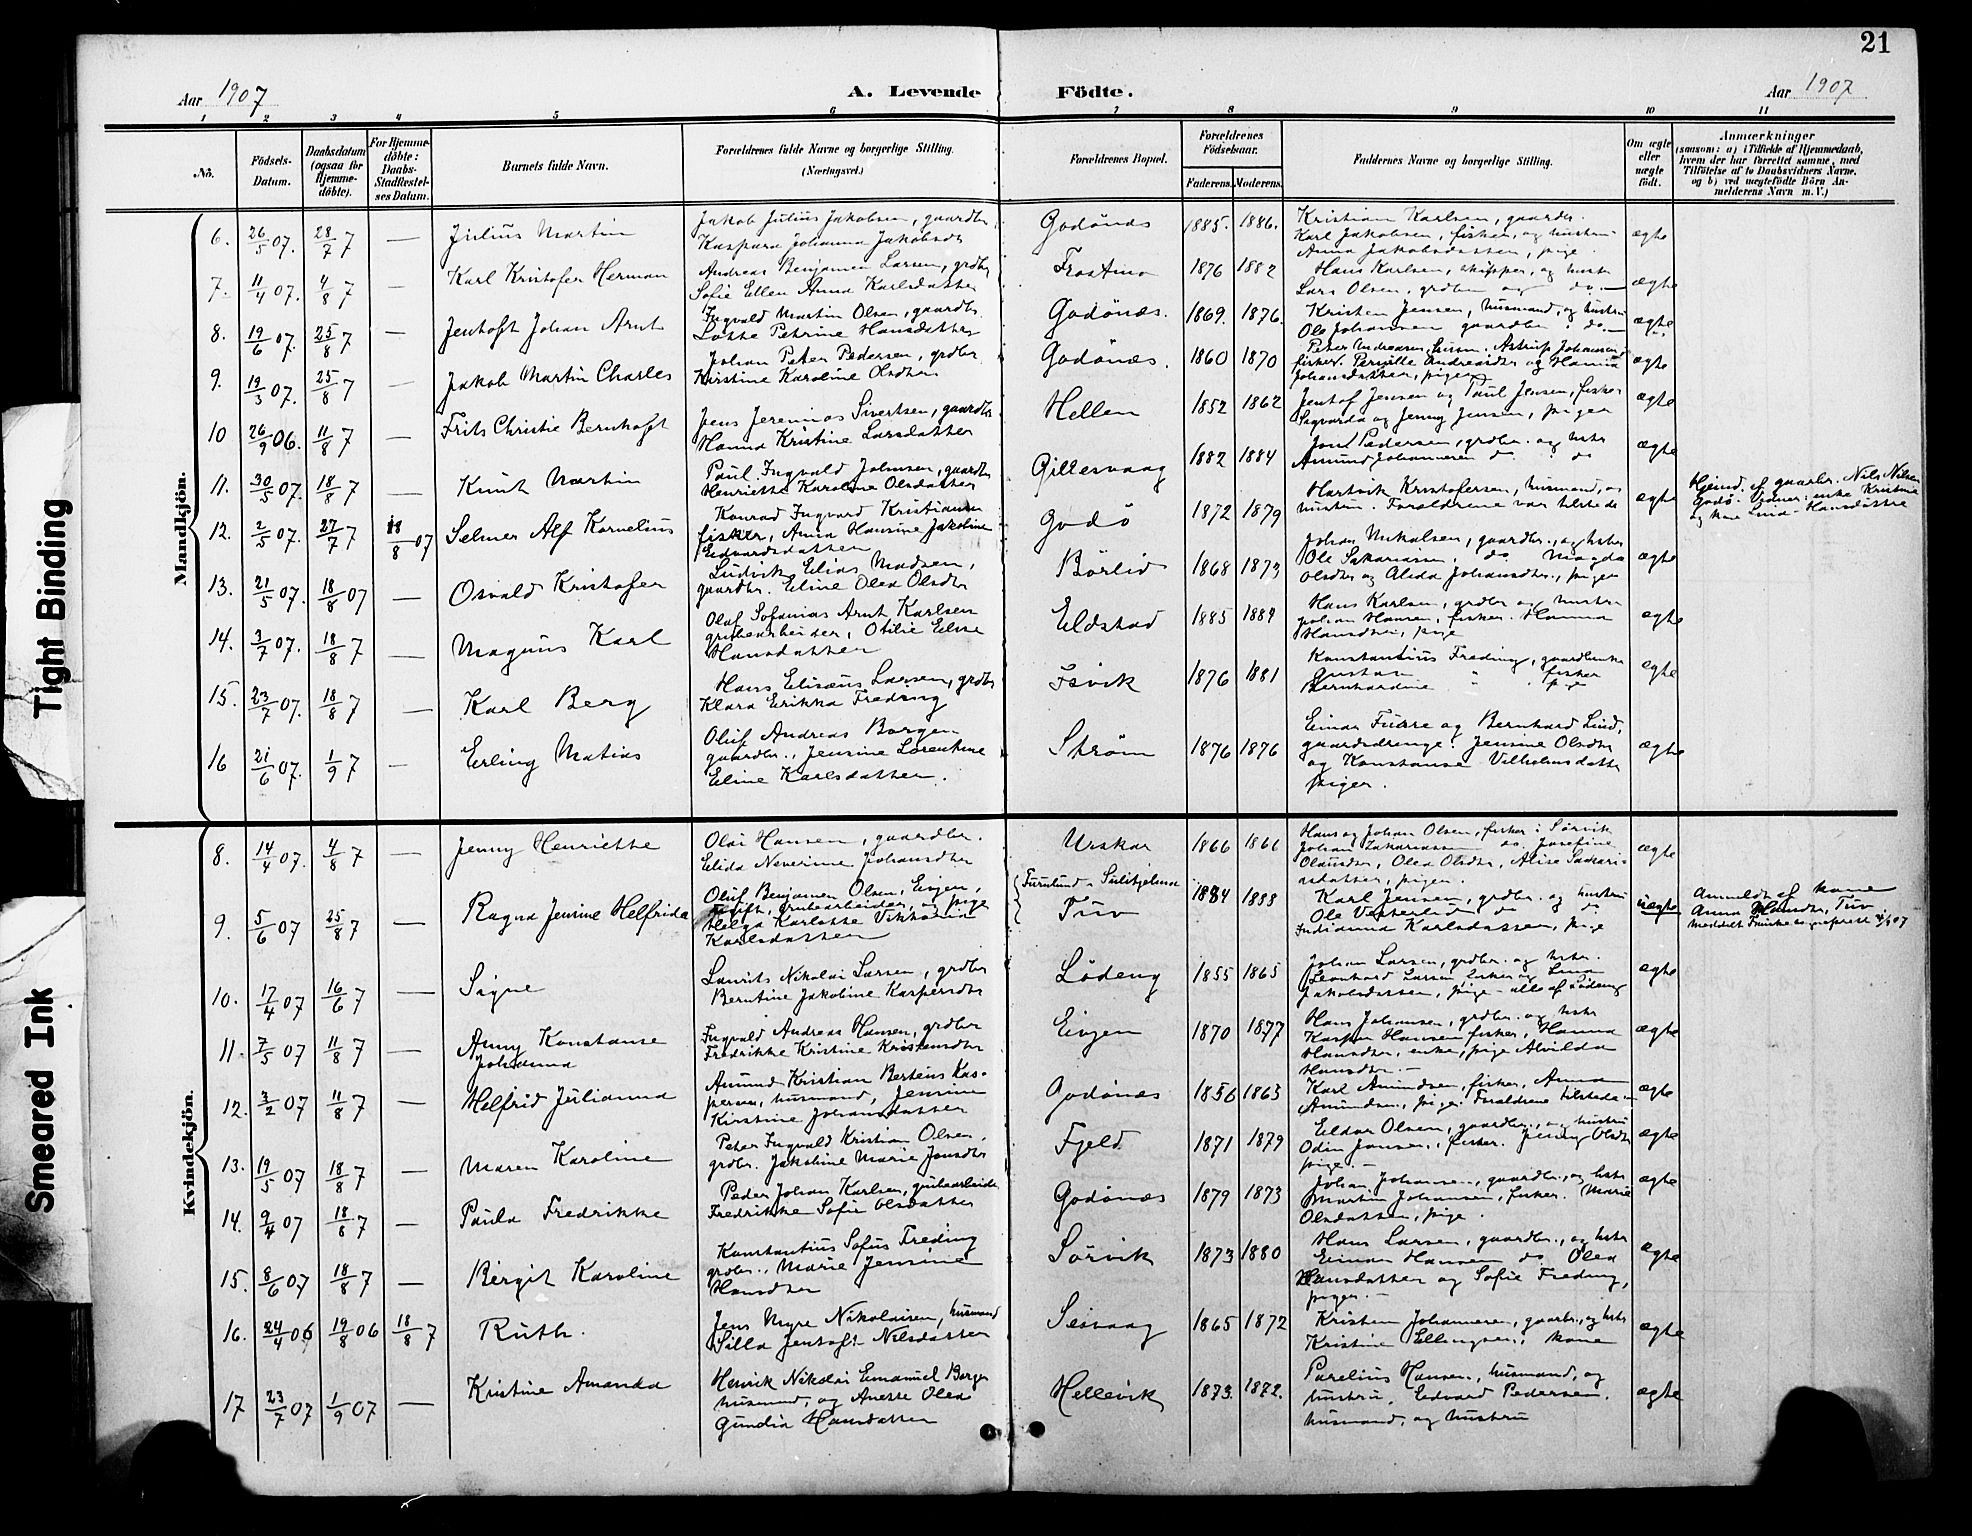 21
Aar 1907
A. Levende Födte.
Aar 1907
1 2 3 4 5 6 7 8 9 10 11
No.
Födsels-Datum.
Daabsdatum (ogsaa for Hjemmedöbte).
For Hjemmedöbte: Daabs-Stadfestelses Datum.
Barnets fulde Navn.
Forældrenes fulde Navne og borgerlige Stilling. (Næringsvei.)
Forældrenes Bopæl.
Forældrenes Födselsaar.
Faderens. Moderens.
Faddernes Navne og borgerlige Stilling.
Om ægte eller uægte födt.
Anmærkninger
(saasom: a) i Tilfælde af Hjemmedaab,
hvem der har forrettet samme, med
Tilföielse af to Daabsvidners Navne,
og b) ved uægtefödte Börn An-
melderens Navn m. V.)
Mandkjön.
6. 26/5 07. 28/7 7 — Julius Martin
Jakob Julius Jakobsen, gaardbr
Kaspara Johanna Jakobsdtr
Godönes 1885. 1886.
Kristian Karlsen, gaardbr.
Karl Jakobsen, fisker, og hustru
Anna Jakobsdatter, pige.
ægte
7. 11/4 07. 4/8 7 — Karl Kristofer Herman
Andreas Benjamin Larsen, grdbr
Sofie Ellen Anna Karlsdatter
1876 1882
Hans Karlsen, skipper, og hustr
Lars Olsen, grdbr og do —
ægte
8. 19/6 07. 25/8 7 — Jentoft Johan Arnt
Ingvald Martin Olsen, gaardbr.
Lotte Petrine Hansdatter
Godönes. 1869. 1876.
Kristen Jensen, husmand, og hustru
Ole Johansen gaardbr : do —
ægte
9. 19/3 07. 25/8 7 — Jakob Martin Charles
Johan Peter Pedersen, grdbr.
Kirstine Karoline Olsdtr
Godönæs. 1860 1870
Peter Andreasen, Astrup Johansen
fisker. Pernille Andreasdtr og Hanna
Johansdatter, piger
ægte
10 26/9 06. 11/8 7 — Frits Christie Bernhoft
Jens Jeremias Sivertsen, gaardbr
Hanna Kristine Larsdatter
Hellen 1852 1862
Jentof Jensen og Paul Jensen, fisker
Sigvarda og Jenny Jensen, piger
ægte
11. 30/5 07. 18/8 7 — Knut Martin
Paul Ingvald Johnsen, gaardbr
Henriette Karoline Olsdatter
Gillesvaag 1882 1884
Joul Pedersen, grdbr. og hstr
Amund Johannesen do : do
ægte
12. 2/5 07. 27/7 7 18/8 07 Selmer Alf Kornelius
Konrad Ingvard Kristiansen
fisker, Anna Hansine Jakobine
Edvardsdatter
Godö 1872 1879
Hartvik Kristofersen, husmand, og
hustru. Forældrene var tilstede
ægte
Hjemd. af gaarbr. Nils Nilsen
Godö. Vidner: enke Kristine
og kone Lind Hansdatter
13. 21/5 07. 18/8 07 — Osvald Kristofer
Ludvik Elias Madsen,
gaardbr. Eline Olea Olsdtr
Börlid 1868 1873
Johan Mikalsen, gaardbr., og hstr
Ole Sakariasen, do Magda
Olsdtr og Alida Johansdtr., piger
ægte
14. 3/7 07. 18/8 7 — Magnus Karl
Olaf Sofanias Arnt Karlsen
grubearbeider, Otilie Elise
Hansdatter
Eldstad 1885 1889
Hans Karlsen, grdbr og hustru
Johan Hansen, fisker. Hanna
Hansdtr, pige
ægte
15. 23/7 07. 18/8 7 — Karl Berg
Hans Elisæus Larsen, grdbr
Klara Erikka Freding
Isvik 1876 1881
Konstantius Freding, gaardbruker
Gustav " fisker
Bernhardine " pige
ægte
16 21/6 07. 1/9 7 — Erling Matias
Oluf Andreas Borgen
gaardbr., Jensine Lorentine
Eline Karlsdatter.
Ström 1876 1876
Einar Furre og Bernhard Lind,
gaardsdrenge. Jensine Olsdtr
og Konstanse Vilholmsdatter
piger.
ægte
Kvindekjön.
8. 14/4 07. 4/8 7 — Jenny Henriette
Olai Hansen, gaardbr.
Elida Neverine Johansdtr
Urskar 1866 1866
Hans og Johan Olsen, fisker i Sörvik
Johan Zakariassen do, Josefine
Olausdtr, Olea Olsdtr, Alise Sakari-
asdatter, piger.
ægte
9. 5/6 07 25/8 7 — Ragna Jensine Helfrida
Oluf Benjamin Olsen, Evjen,
Ugift, Grubearbeider, og pige
Helga Karlotte Viktoria
Karlsdatter
Furulund - Sulitjelma
Tuv 1884 1888
Karl Jensen, grdbr. og hustru
Ole Vesterlid do do
Indianna Karlsdatter, pige
uægte
Anmeldt af kone
Anna Hansdtr, Tuv
10. 17/4 07 16/6 7 — Signe
Laurits Nikolai Larsen, grdbr
Berntine Jakobine Kaspersdtr
Lödeng 1855 1865
Johan Larsen, grdbr. og hstr.
Leonhard Larsen fisker og Lina
Jakobsdatter, pige - alle af Lödeng
ægte
11. 7/5 07 11/8 7 — Anny Konstanse
Johanna
Ingvald Andreas Hansen, grdbr
Fredrikke Kristine Kristensdtr
Evjen 1870 1877
Hans Johansen, grdbr. og hstr
Kasper Hansen fisker, Hanna
Hansdtr, enke, pige Alvilda
Hansdtr. —
ægte
12. 3/2 07 11/8 7 — Helfrid Julianna
Amund Kristian Berteus Kas-
persen, husmand, Jensine
Kirstine Johansdatter
Godönes 1856 1863
Karl Amundsen, fisker, Anna
Amundsen, pige. Forældrene tilstede
ægte
13. 19/5 07 18/8 7 — Maren Karoline
Peter Ingvald Kristian Olsen,
grdbr. Jakobine Marie Jonsdtr
Fjeld 1871 1879
Eldar Olsen, gaardbr., og hustru
Odin Jensen, fisker. Jenny Olsdtr
pige. —
ægte
14. 9/4 07 18/8 7 — Paula Fredrikke
Peder Johan Karlsen, grubearbeider
Fredrikke Sofie Olsdatter
Godönæs 1879 1873
Johan Johansen, gaardbr., og hstr
Martin Johansen, fisker. Marie
Olsdatter, pige.
ægte
15. 8/6 07 18/8 7 — Birgit Karoline
Konstantius Sofus Freding
grdbr., Marie Jensine
Hansdtr
Sörvik 1873 1880
Hans Larsen, gaardbr., og hstr
Einar Hansen do Olea
Hansdatter og Sofie Freding,
piger. —
ægte
16. 24/4 06 19/8 06 18/8 7 Ruth.
Jens Myre Nikolaisen, husmand
Silla Jentoft Nilsdatter
Seivaag 1865 1872
Kristen Johannesen, gaarbr., og hstr
Kristine Ellingsen, kone
ægte
17 23/7 07 1/9 07 — Kristine Amanda
Henrik Nikolai Emanuel Borgen
husmand, og Anette Olea
Gundia Hansdatter
Hellevik 1873. 1872.
Parelius Hansen, husmand, og
hustru, Edvard Pedersen,
husmand, og hustru
ægte
Tight Binding
Smeared Ink